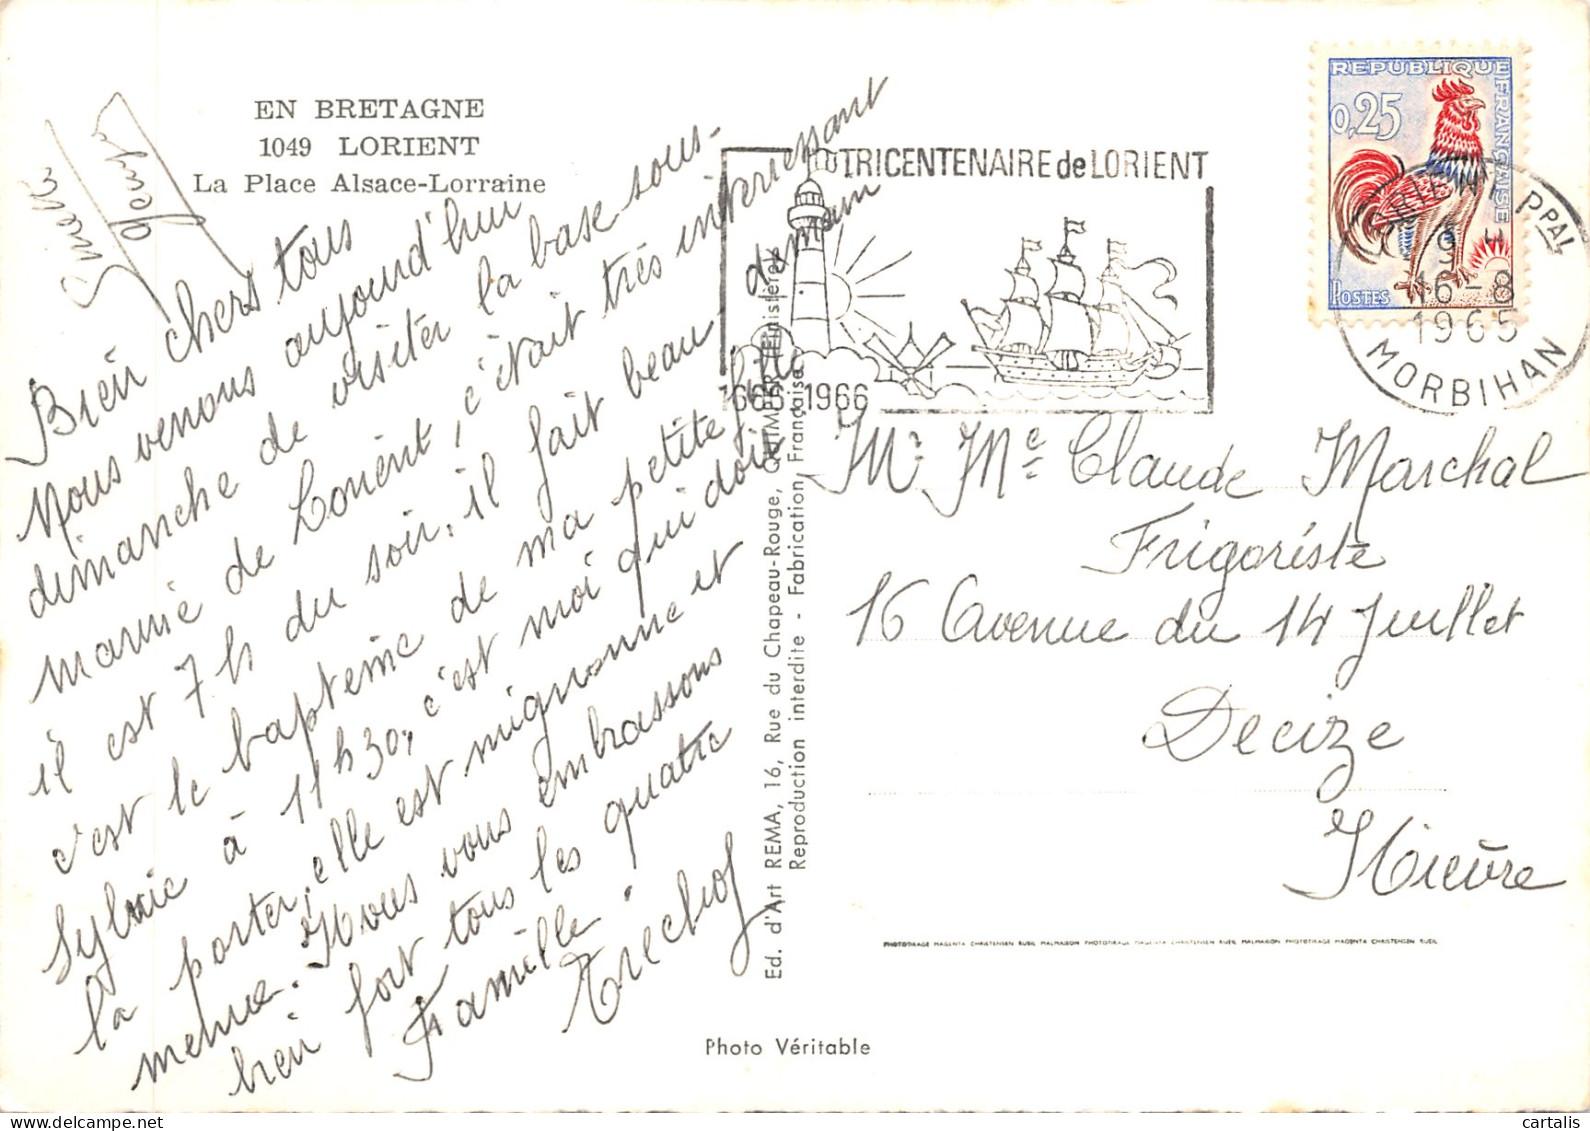 EN BRETAGNE
1049 LORIENT
La Place Alsace-Lorraine
Bien chers tous
Nous venons aujourd'hui
dimanche de visiter la base sous-
marine de Lorient, c'était très interessant
il est 7h du soir, il fait beau, demain
c'est le baptême de ma petite fille
Sylvie à 11h30, c'est moi qui doit
la porter, elle est mignonne et
menue. Nous vous embrassons
bien fort tous les quatre
Famille
Trechof
TRICENTENAIRE de LORIENT
1666 1966
REPUBLIQUE FRANÇAISE
0,25
POSTES
PPAL
16-8
1965
MORBIHAN
Mr Me Claude Marchal
Frigoriste
16 Avenue du 14 Juillet
Decize
Nièvre
Ed. d'Art REMA, 16, Rue du Chapeau-Rouge, QUIMPER (Finistère)
Reproduction interdite - Fabrication Française
PHOTOTIRAGE MAGENTA CHRISTENSEN RUEIL MALMAISON PHOTOTIRAGE MAGENTA CHRISTENSEN RUEIL MALMAISON PHOTOTIRAGE MAGENTA CHRISTENSEN RUEIL
Photo Véritable
© cartalis
cartalis.com